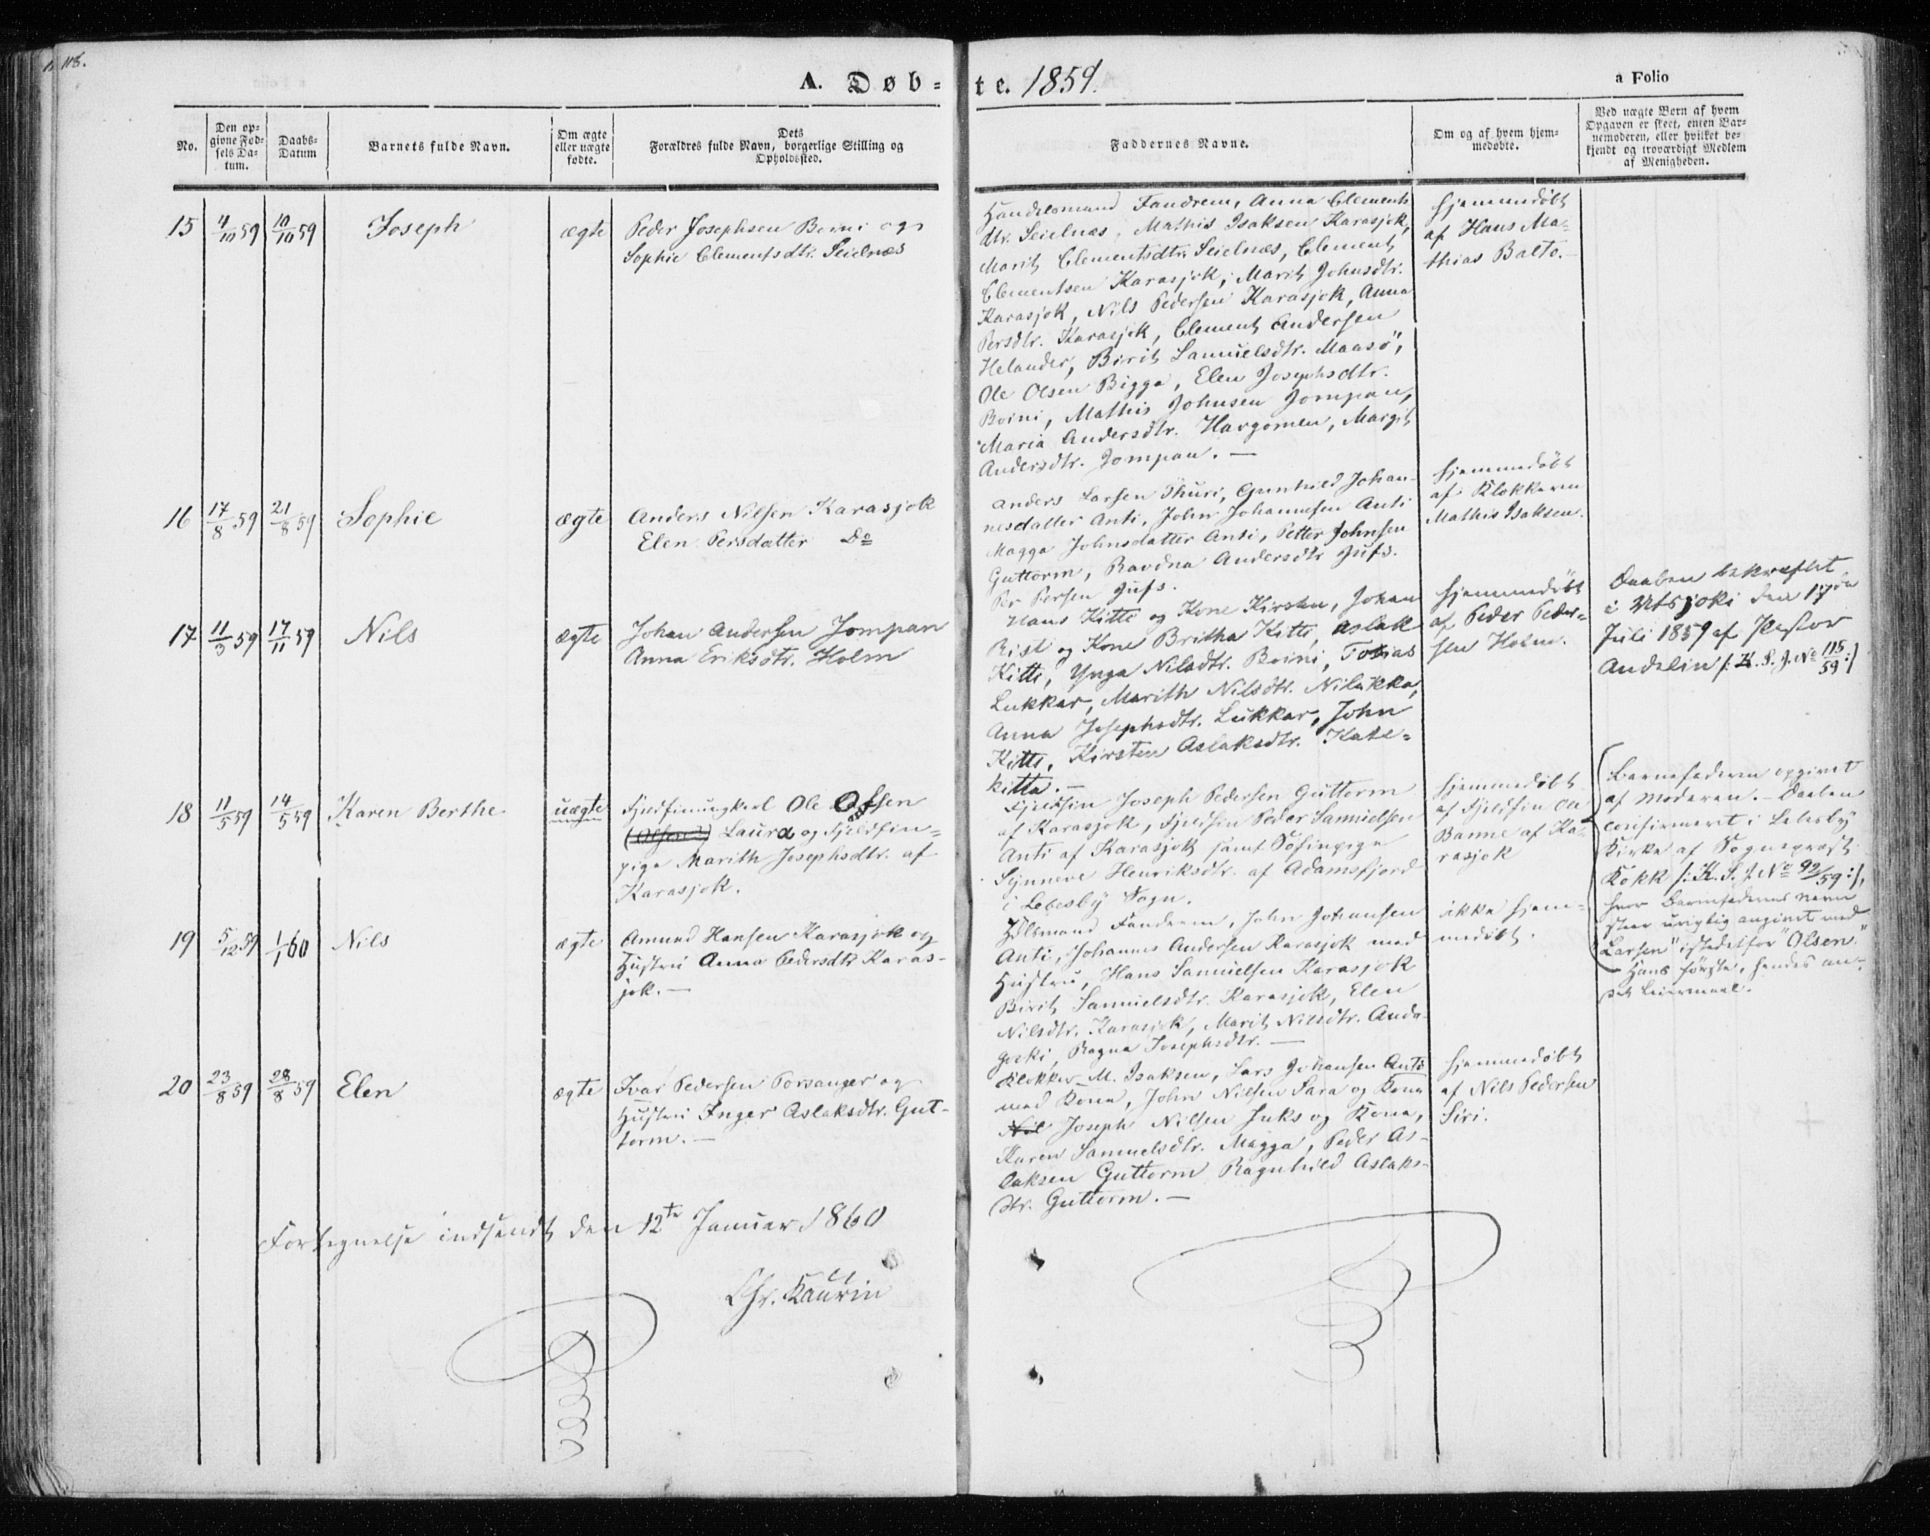 118.
A. Døb-
te. 1859.
a Folio
No.
Den op-
givne Fød-
sels Da-
tum.
Daabs-
Datum
Barnets fulde Navn.
Om ægte
eller uægte
fødte.
Dets
Forældres fulde Navn, borgerlige Stilling og
Opholdssted.
Faddernes Navne.
Om og af hvem hjem-
medøbte.
Ved uægte Børn af hvem
Opgaven er skeet, enten Bar-
nemoderen, eller hvilket be-
kjendt og troværdigt Medlem
af Menigheden.
15 4/10 59 10/10 59 Joseph ægte
Peder Josephsen Boini og
Sophie Clementsdtr. Seielnæs
Handelsmand Fandrem, Anna Clements
dtr. Seielnæs, Mathis Isaksen Karasjok,
Marit Clementsdtr. Seielnæs, Clement
Clementsen Karasjok, Marit Johnsdtr.
Karasjok, Nils Pedersen Karasjok, Anna
Persdtr. Karasjok, Clement Andersen
Helander, Birit Samuelsdtr. Maasø,
Ole Olsen Bigga, Elen Josephsdtr.
Boini, Mathis Johnsen Jompan,
Maria Andersdtr. Havgomen, Margit
Andersdtr. Jompan. —
hjemmedøbt
af Hans Ma-
thias Balto. —
16 17/8 59 21/8 59 Sophie ægte
Anders Nilsen Karasjok
Elen Persdatter Do
Anders Larsen Thuri, Gunhild Johan-
nesdatter Anti, John Johannesen Anti
Magga Johnsdatter Anti, Petter Johnsen
Guttorm, Ravdna Andersdtr Jufs.
Per Persen Jufs.
hjemmedøbt
af Klokkeren
Mathis Isaksen.
17 11/3 59 17/11 59 Nils ægte
Johan Andersen Jompan
Anna Eriksdtr. Holm
Hans Kitti og Kone Kirsten, Johan
Rist og Kone Britha Kitti, Aslak
Kitti, Ynga Nilsdtr. Boini, Tobias
Lukkar, Marith Nilsdtr. Nilukka,
Anna Josephsdtr. Lukkar, John
Kitti, Kirsten Aslaksdtr. Kate-
kitta. —
hjemmedøbt
af Peder Peder-
sen Holm.
Daaben bekræftet
i Utsjoki den 17de
Juli 1859 af Pastor
Andelin /: K. S. J. No 115/59 :/
18 11/5 59 14/5 59 Karen Berthe uægte
Fjeldfinungkarl Ole Olsen
(Olsen) Laura og Fjeldfin-
pige Marith Josephsdtr. af
Karasjok.
Fjeldfin Joseph Pedersen Guttorm
af Karasjok, Fjeldfin Peder Samuelsen
Anti af Karasjok samt Søfinpige
Synneve Henriksdtr. af Adamsfjord
i Lebesby Sogn.
hjemmedøbt
af Fjeldfin Ole
Banne af Ka-
rasjok
Barnefaderen opgivet
af Moderen. — Daaben
confirmeret i Lebesby
Kirke af Sognepræst
Kokk /: K. S. J. No 92/59 :/,
hvor Barnefaderens navn
staar urigtig angivet med
"Larsen" istedetfor "Olsen."
— Hans første, hendes an-
det Leiermaal.
19 5/12 59 1/1 60 Nils ægte
Amund Hansen Karasjok og
Hustru Anna Pedersdtr Karas-
jok. —
Hdlsmand Fandrem, John Johansen
Anti, Johannes Andersen Karasjok med
Hustru, Hans Samuelsen Karasjok
Birit Samuelsdtr. Karasjok, Elen
Nilsdtr. Karasjok, Marit Nilsdtr. Anda-
Ragna Josephsdtr. —
ikke hjem-
medøbt.
20 23/8 59 28/8 59 Elen ægte
Ivar Pedersen Porsanger og
Hustru Inger Aslaksdtr. Gut-
torm. —
Klokker M. Isaksen, Lars Johansen Anti
med Kone, John Nilsen Sara og Kone
Nil Joseph Nilsen Juks og Kone,
Karen Samuelsdtr. Magga, Peder As-
laksen Guttorm Ragnhild Aslaks-
dtr. Guttorm. —
hjemmedøbt
af Nils Pedersen
Siri.
Fortegnelse indsendt den 12te Januar 1860
Chr. Kaurin